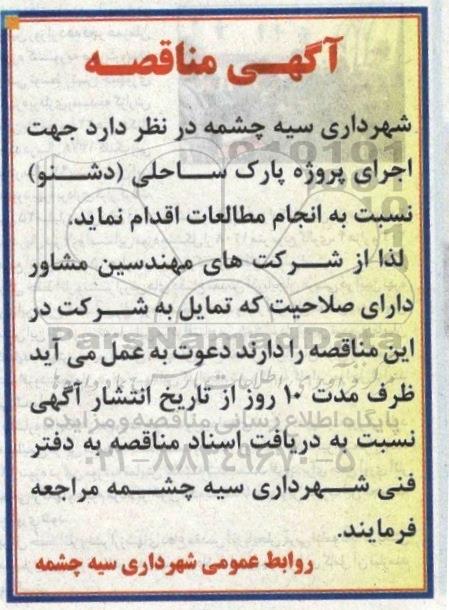 آگهی مناقصه
شهرداری سیه چشمه در نظر دارد جهت
اجرای پروژه پارک ساحلی (دشنو)
نسبت به انجام مطالعات اقدام نماید.
لذا از شرکت های مهندسین مشاور
دارای صلاحیت که تمایل به شرکت در
ParsNamadData
این مناقصه را دارند دعوت به عمل می آید
ظرف مدت ۱۰ روز از تاریخ انتشار آگهی
پایگاه اطلاع رسانی مناقصه و مزایده
نسبت به دریافت اسناد مناقصه به دفتر
۰۲۱-۸۸۳۴۹۶۷۰-۵
فنی شهرداری سیه چشمه مراجعه
فرمایند.
روابط عمومی شهرداری سیه چشمه